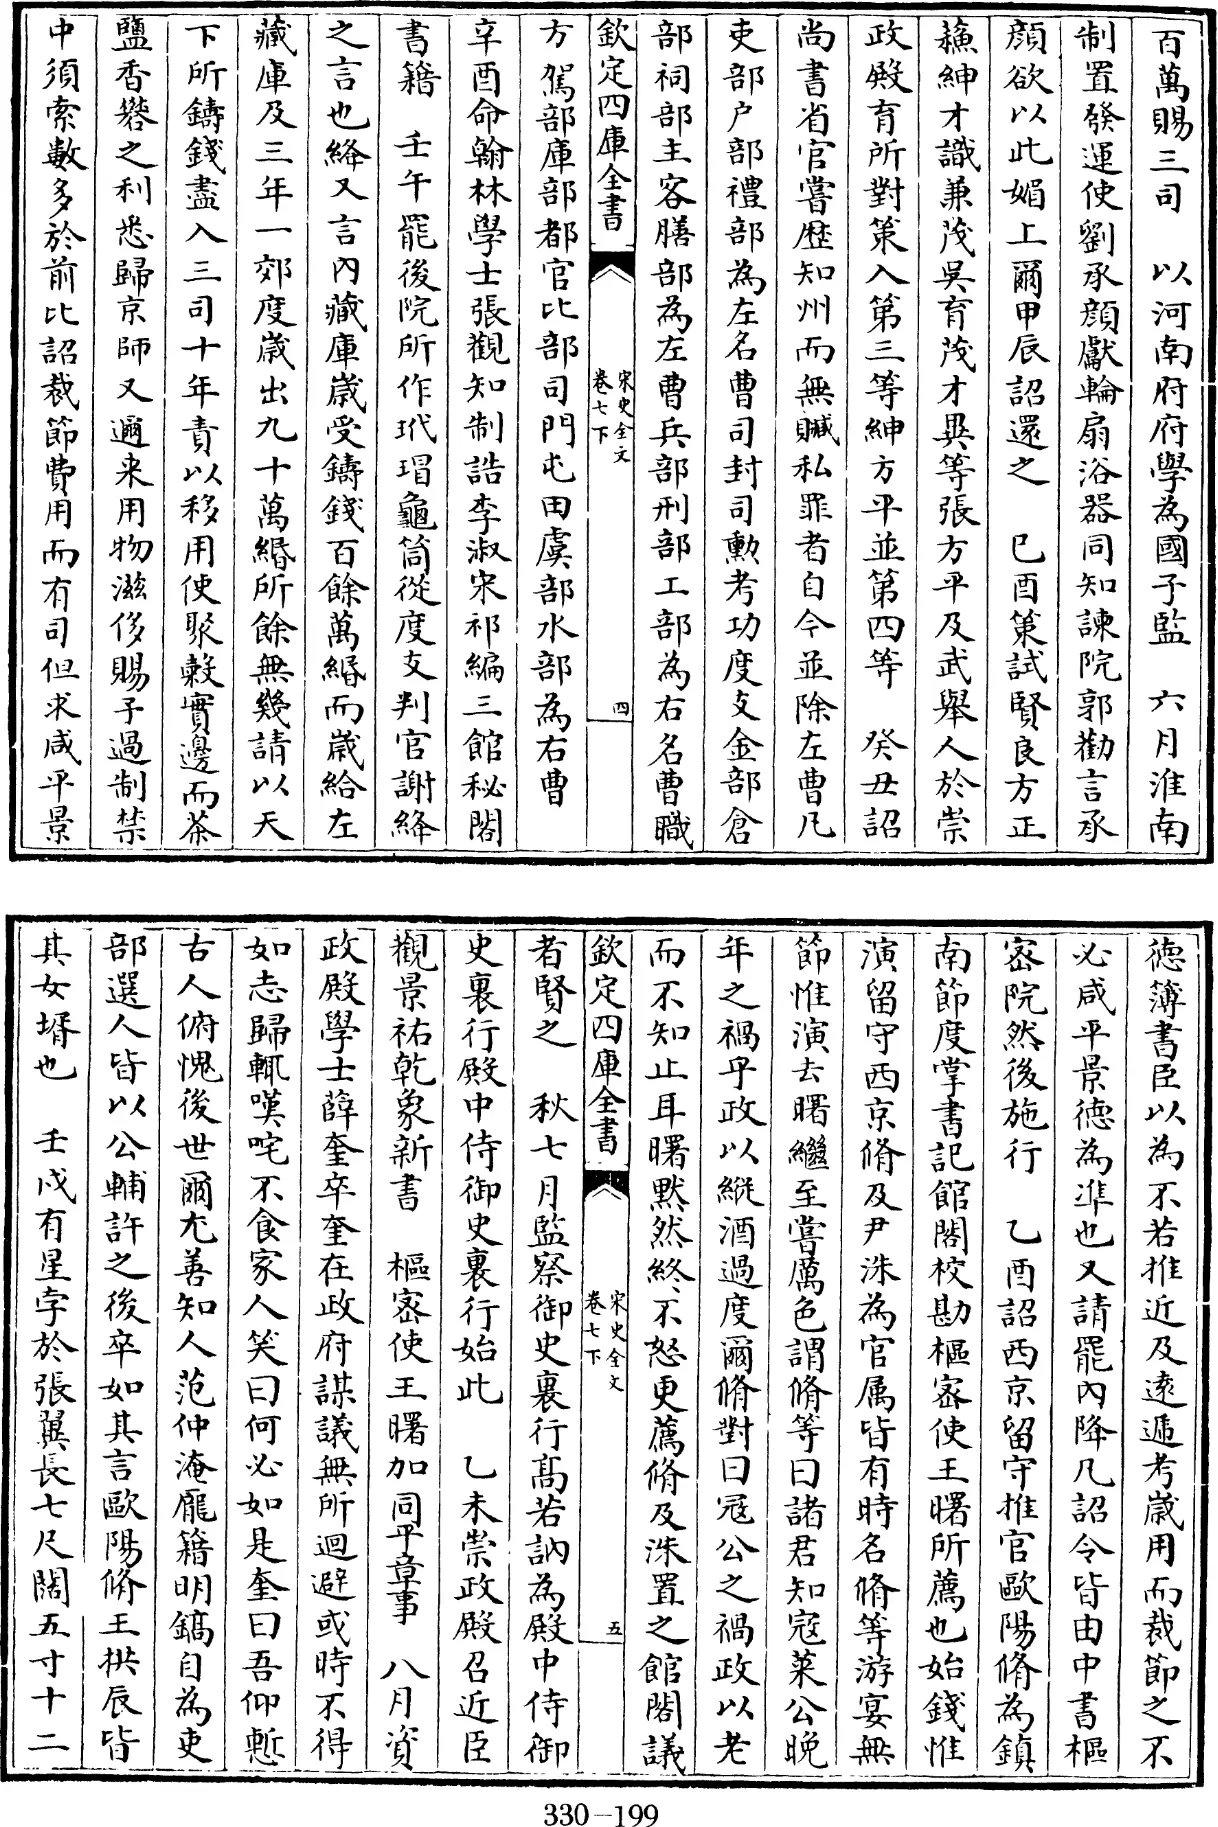 百萬賜三司　以河南府府學為國子監　六月淮南
制置發運使劉承顔獻輪扇浴器同知諫院郭勸言承
顔欲以此媚上爾甲辰詔還之　已酉策試賢良方正
蘓紳才識兼茂吳育茂才異等張方平及武舉人於崇
政殿育所對策入第三等紳方平並第四等　癸丑詔
尚書省官嘗歴知州而無贓私罪者自今並除左曹凡
吏部户部禮部為左名曹司封司勲考功度支金部倉
部祠部主客膳部為左曹兵部刑部工部為右名曹職
欽定四庫全書
宋史全文
卷七下
四
方駕部庫部都官比部司門屯田虞部水部為右曹
辛酉命翰林學士張觀知制誥李淑宋祁編三館秘閣
書籍　壬午罷後院所作玳瑁龜筒從度支判官謝絳
之言也絳又言内藏庫歳受鑄錢百餘萬緡而歳給左
藏庫及三年一郊度歳出九十萬緡所餘無幾請以天
下所鑄錢盡入三司十年責以移用使聚穀實邊而茶
鹽香礬之利悉歸京師又邇来用物滋侈賜予過制禁
中須索數多於前比詔裁節費用而有司但求咸平景
德簿書臣以為不若推近及逺遞考歳用而裁節之不
必咸平景徳為準也又請罷内降凡詔令皆由中書樞
宻院然後施行　乙酉詔西京留守推官歐陽脩為鎮
南節度掌書記館閣校勘樞宻使王曙所薦也始錢惟
演留守西京脩及尹洙為官属皆有時名脩等游宴無
節惟演去曙繼至嘗厲色謂脩等曰諸君知冦萊公晚
年之禍乎政以縱酒過度爾脩對曰冦公之禍政以老
而不知止耳曙黙然終不怒更薦脩及洙置之館閣議
欽定四庫全書
宋史全文
卷七下
五
者賢之　秋七月監察御史裏行髙若訥為殿中侍御
史裏行殿中侍御史裏行始此　乙未崇政殿召近臣
觀景祐乾象新書　樞宻使王曙加同平章事　八月資
政殿學士薛奎卒奎在政府謀議無所迴避或時不得
如志歸輒嘆咤不食家人笑曰何必如是奎曰吾仰慙
古人俯愧後世爾尤善知人范仲淹龎籍明鎬自為吏
部選人皆以公輔許之後卒如其言歐陽脩王拱辰皆
其女壻也　壬戌有星孛於張翼長七尺闊五寸十二
330-199